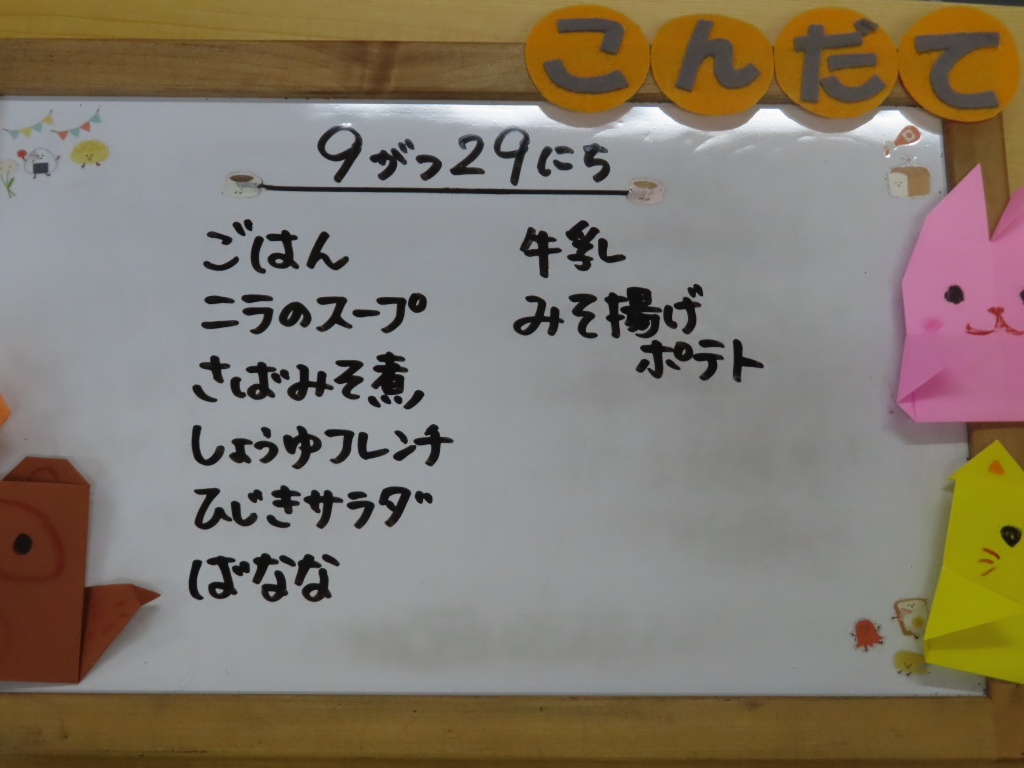 こんだて
9がつ29にち
ごはん
ニラのスープ
さばみそ煮
しょうゆフレンチ
ひじきサラダ
ばなな
牛乳
みそ揚げ
ポテト